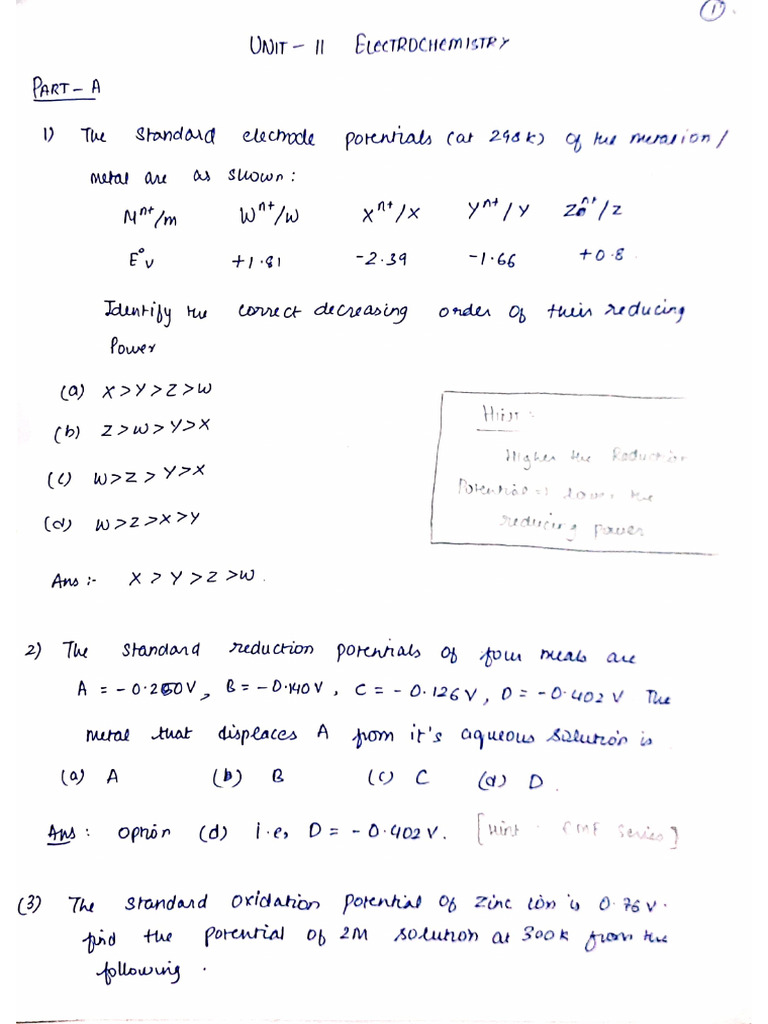 1
UNIT - II ELECTROCHEMISTRY
PART - A
1) The standard electrode potentials (at 298k) of the metal ion /
metal are as shown:
Mⁿ⁺/m Wⁿ⁺/w Xⁿ⁺/X Yⁿ⁺/Y Zⁿ⁺/Z
E°v +1.81 -2.39 -1.66 +0.8
Identify the correct decreasing order of their reducing
Power
(a) X>Y>Z>W
(b) Z>W>Y>X
(c) W>Z>Y>X
(d) W>Z>X>Y
Hint :
Higher the Reduction
Potential => lower the
reducing power
Ans :- X > Y > Z > W.
2) The standard reduction potentials of four meals are
A = -0.250V, B = -0.140V, C = -0.126V, D = -0.402V The
metal that displaces A from it's aqueous solution is
(a) A (b) B (c) C (d) D.
Ans : option (d) i.e, D = -0.402V. [Hint : EMF Series]
(3) The standard oxidation potential of zinc ion is 0.76V.
find the potential of 2M solution at 300k from the
following.